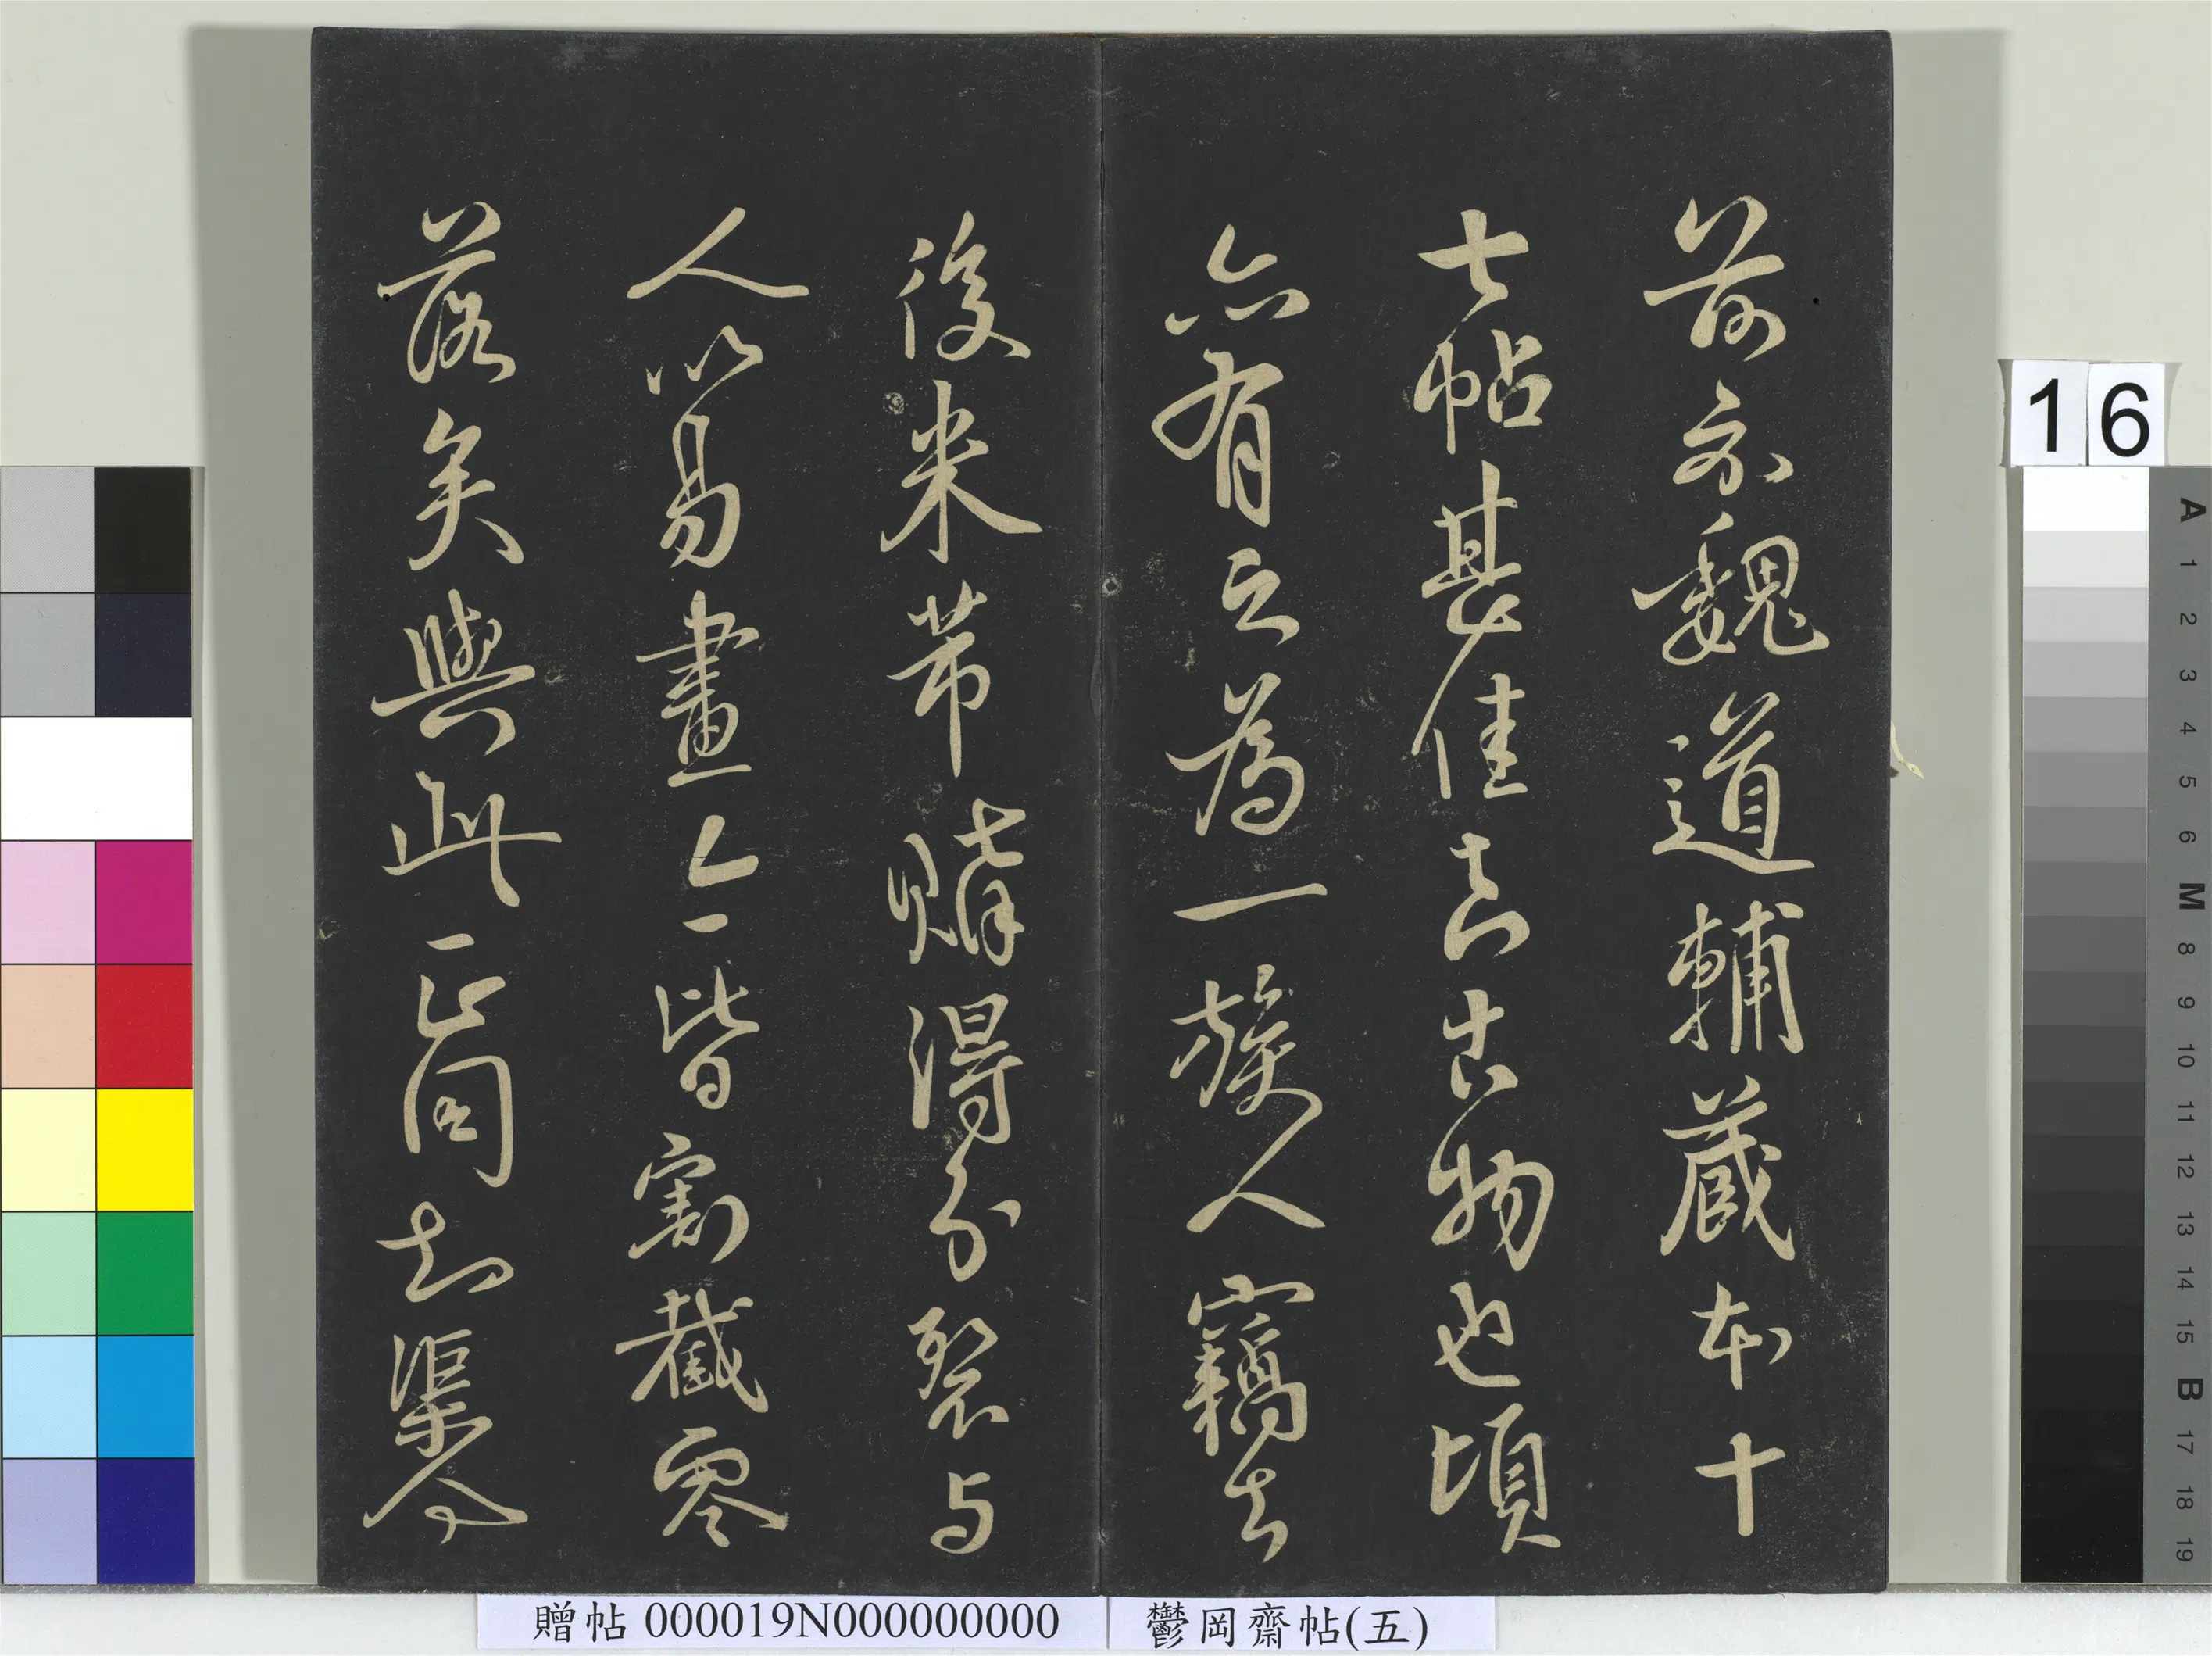 前示魏道輔藏本十
七帖甚佳真古物也頃
亦有之為一族人竊去
後米芾購得分裂与
人以易畫今皆割截零
落矣與此正同知渠今
16
贈帖 000019N000000000
鬱岡齋帖(五)
A 1 2 3 4 5 6 M 8 9 10 11 12 13 14 15 B 17 18 19